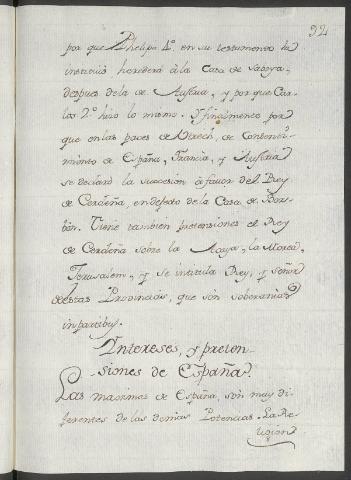 92
por que Phelipe 4º. en su testamento la
instituió heredera à la Casa de Saboya,
despues dela de Austria, y por que Car-
los 2º. hizo lo mismo. Y finalmente por
que en las paces de Utrech, de Consenti-
miento de España, Francia, y Austria
se declaró la succesion à favor del Rey
de Cerdeña, en defecto de la Casa de Bor-
bon. Tiene tambien pretensiones el Rey
de Cerdeña sobre la Acaya, la Morea,
Jerusalem, y se intitula Rey, y señor
de estas Provincias, que son soberanias
in partibus.
Intereses, y preten-
siones de España.
Las maximas de España, son muy di-
ferentes de las demas Potencias. La Re-
ligion